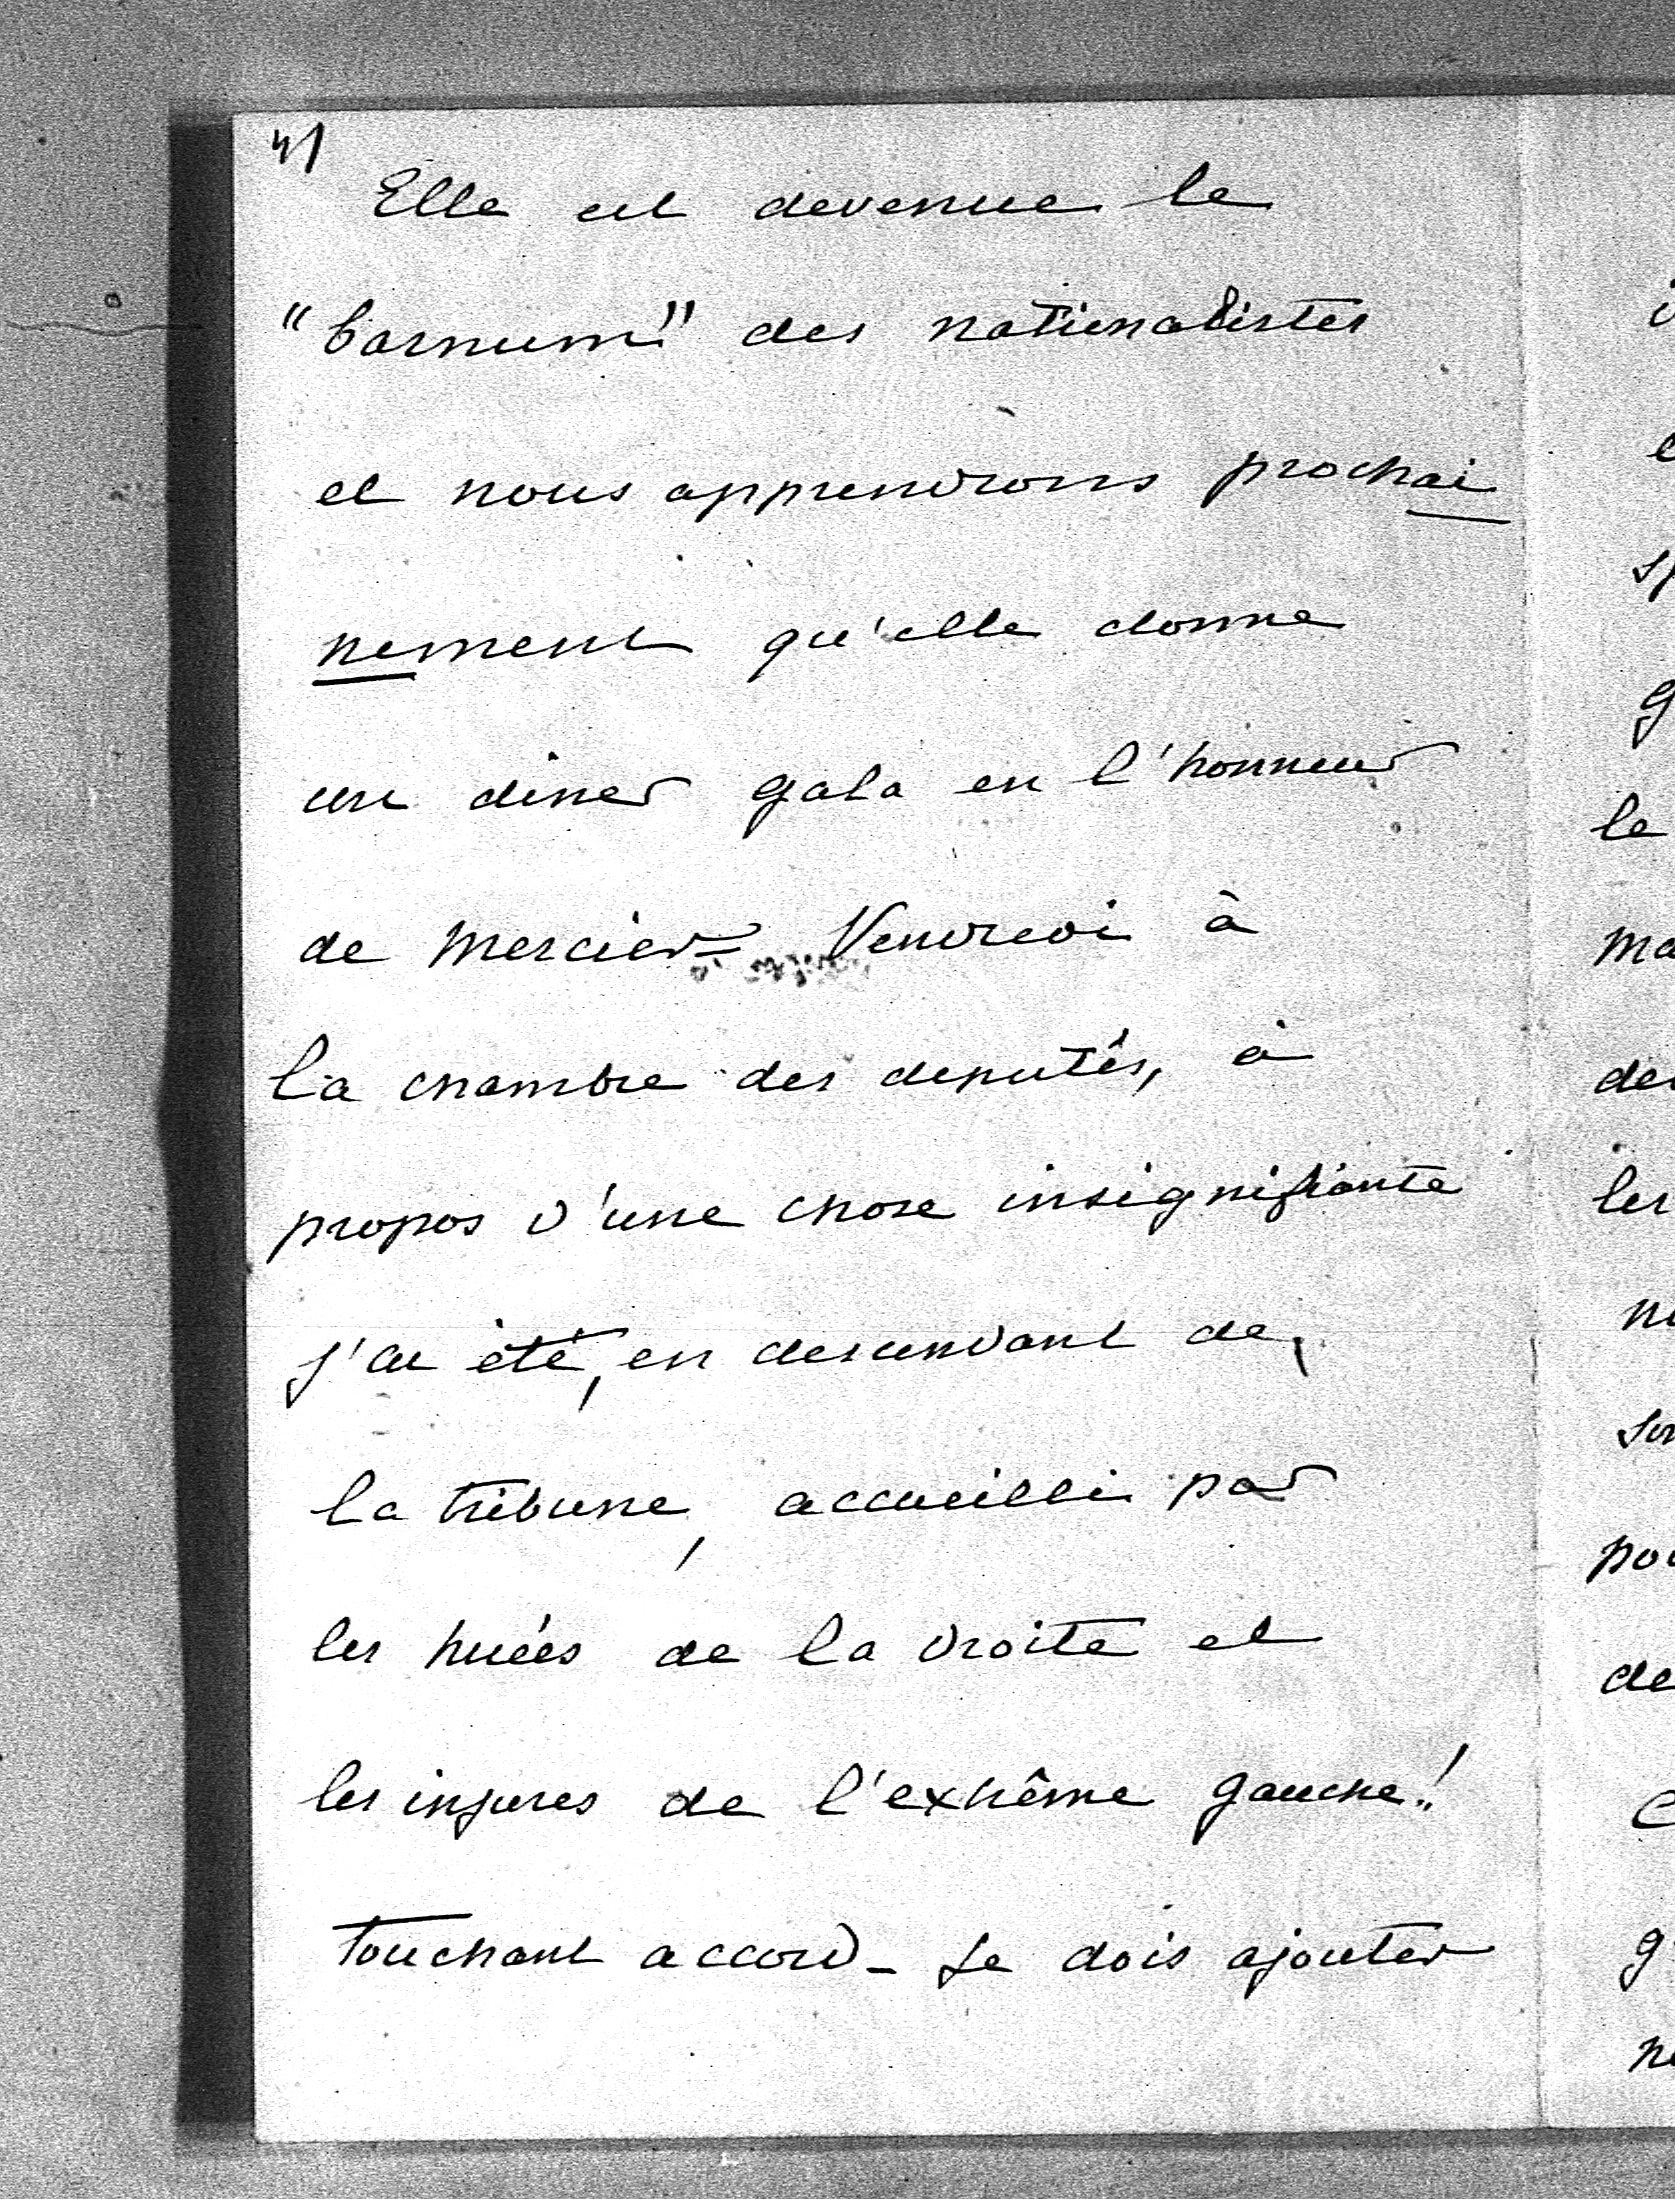 4)
Elle est devenue le
"barnum" des nationalistes
et nous apprendrons prochai
nement qu'elle donne
un diner gala en l'honneur
de Mercier - Vendredi à
la chambre des deputés, à
propos d'une chose insignifiante
j'ai été, en descendant de
la tribune, accueilli par
les huées de la droite et
les injures de l'extrême gauche!
Touchant accord - Je dois ajouter
le
ma
des
les
de